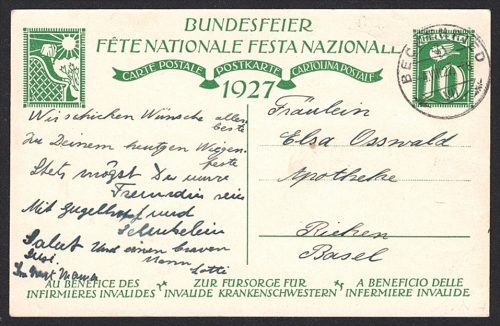 BUNDESFEIER
FÊTE NATIONALE FESTA NAZIONALE
CARTE POSTALE POSTKARTE CARTOLINA POSTALE
1927
HELVETIA
10
Wir schicken Wünsche allerbeste
Zu Deinem heutgen Wiegenfeste
Stets mögst Du unsre
Freundin sein
Mit Gugelhopf und
Schinkelein
Salut Und einen braven
Mann
Susi Lotti
Mama
Fräulein
Elsa Osswald
Apotheke
Riehen
Basel
AU BÉNÉFICE DES INFIRMIÈRES INVALIDES
ZUR FÜRSORGE FÜR INVALIDE KRANKENSCHWESTERN
A BENEFICIO DELLE INFERMIERE INVALIDE